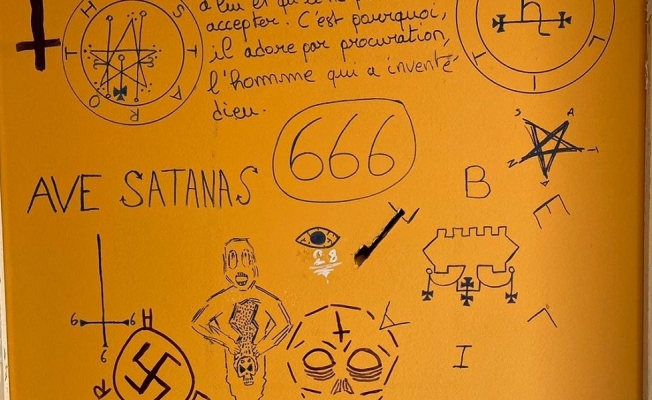 H S T A R O T
à lui et qu'il ne
accepter! C'est pourquoi,
il adore par procuration,
l'homme qui a inventé
dieu.
L I T I
666
AVE SATANAS
S A T A N
B E L I A L
28
6 6
6
H
R